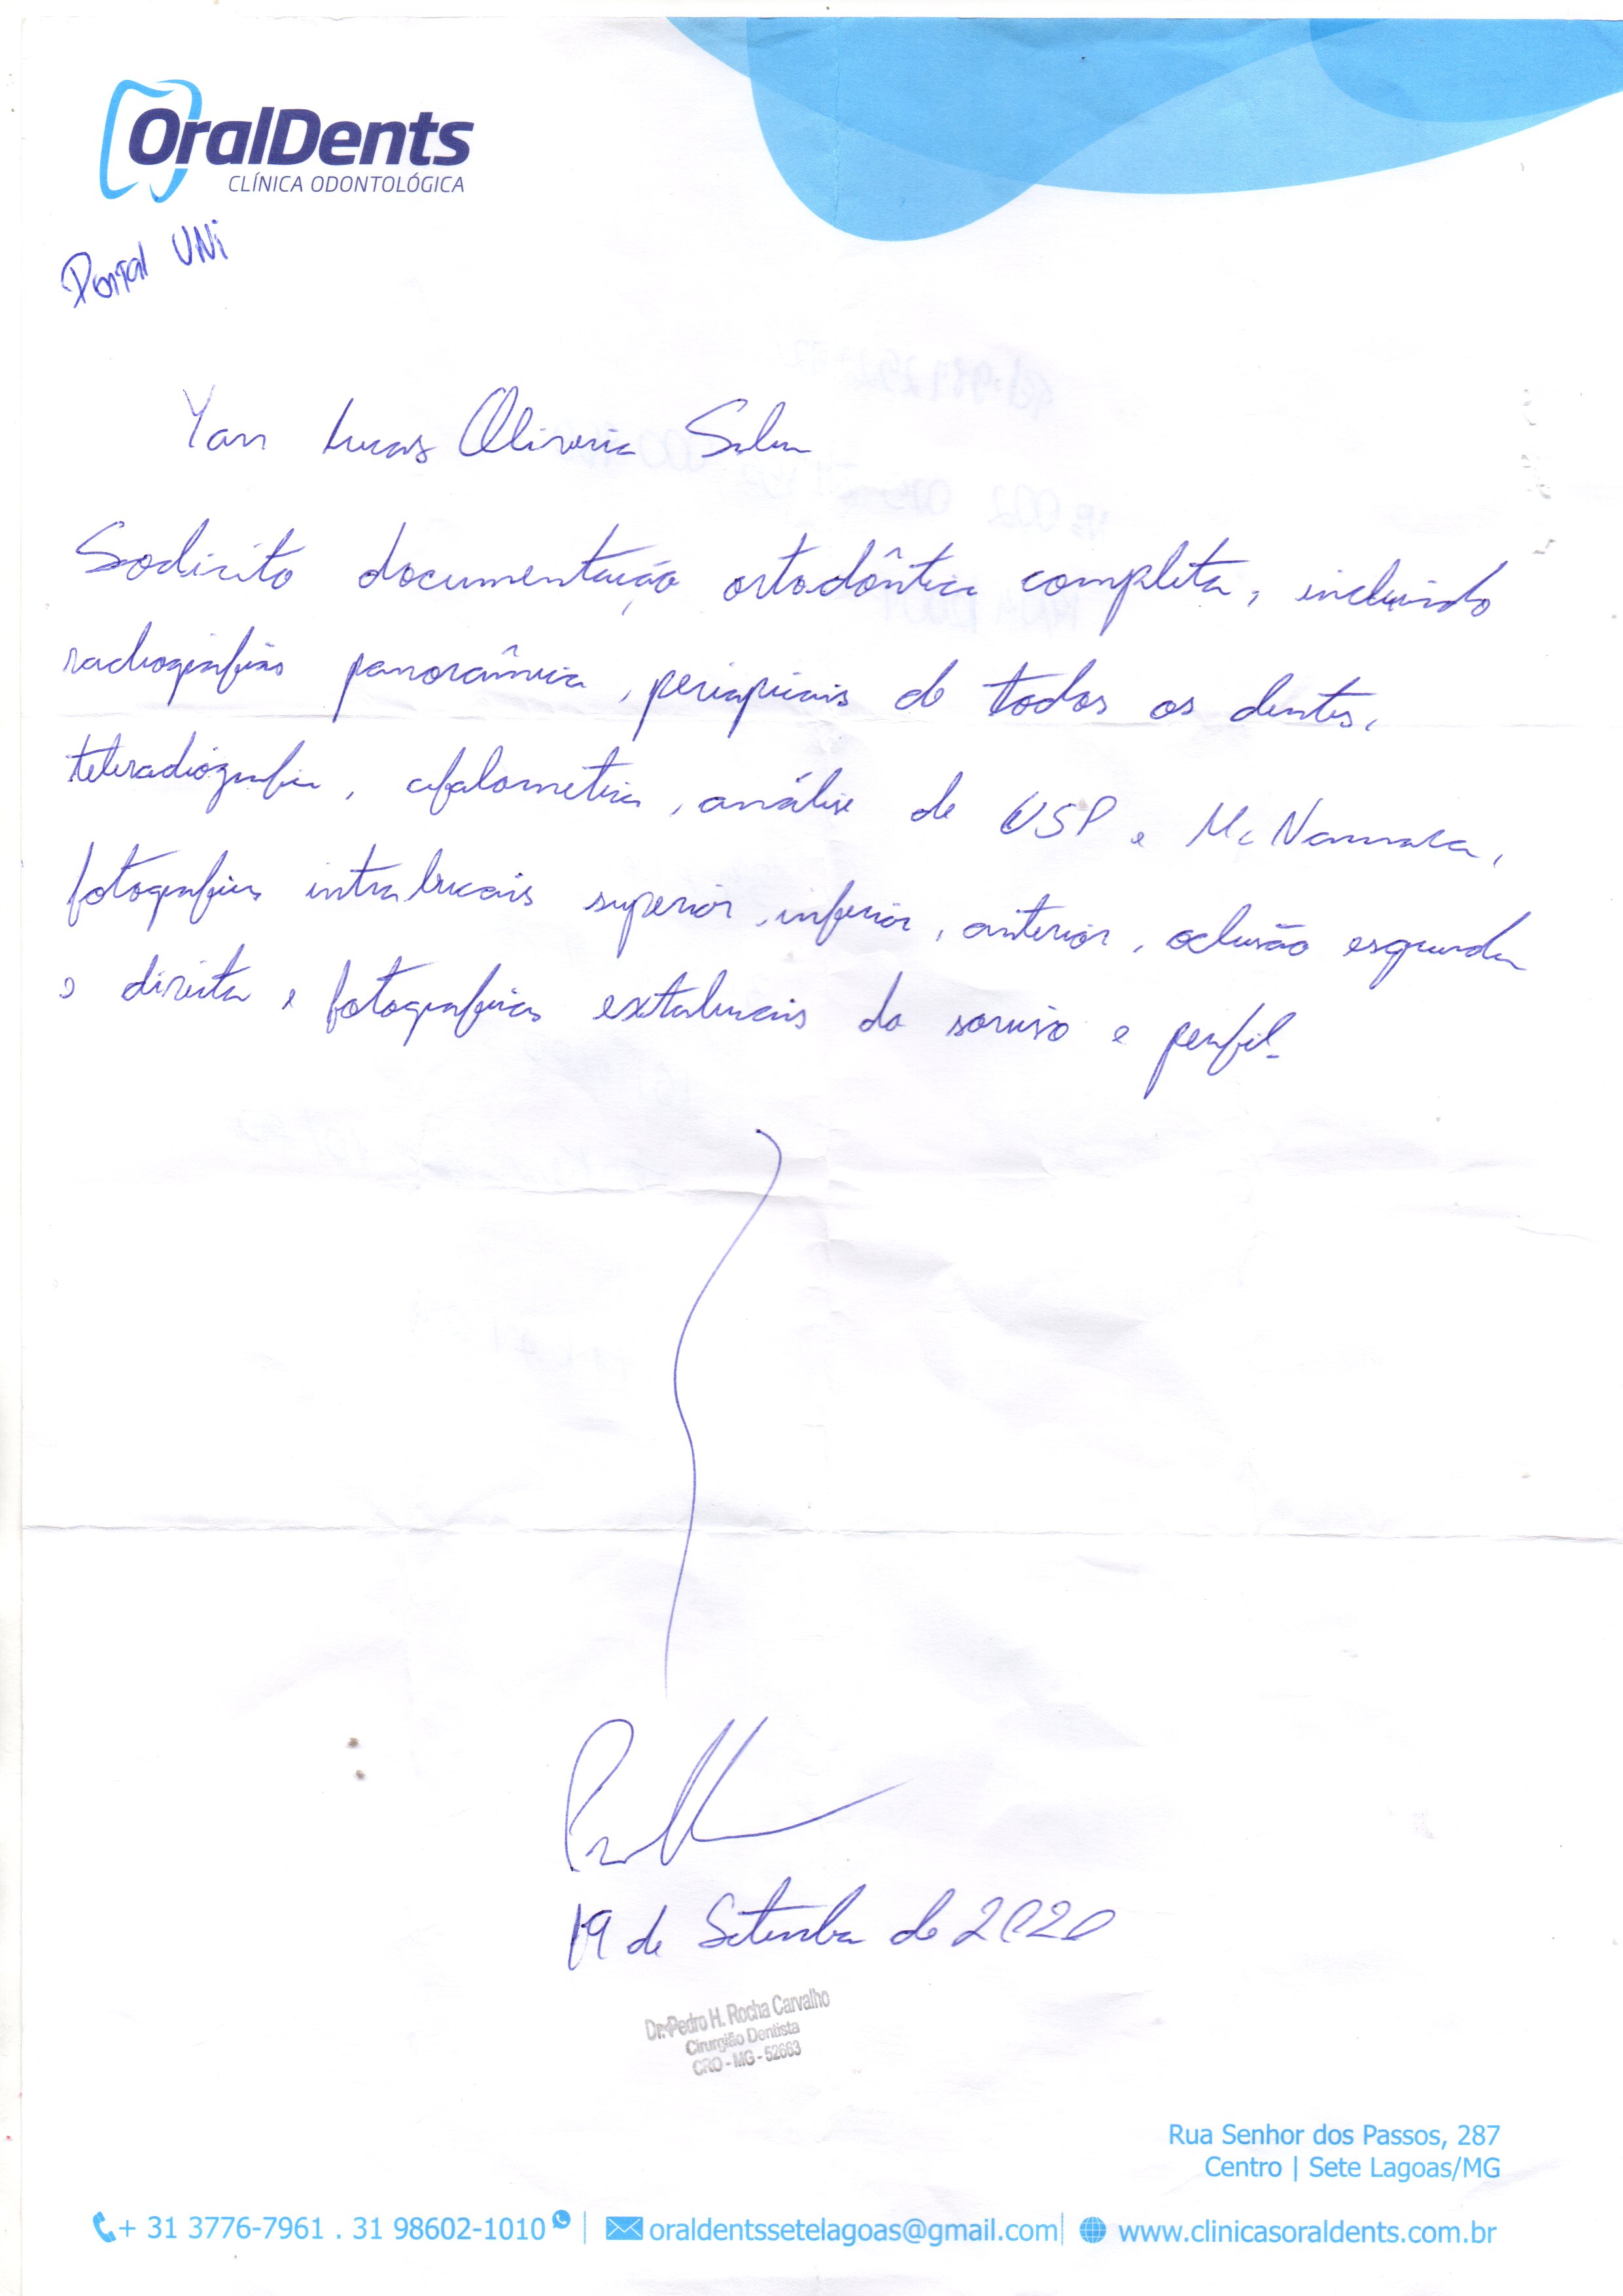 OralDents
CLÍNICA ODONTOLÓGICA
Portal UNi
Yan Lucas Oliveira Silva
Solicito documentação ortodôntica completa, incluindo
radiografias panorâmica, periapicais de todos os dentes,
teleradiografia, cefalometria, análise de USP e McNamara,
fotografias intrabucais superior, inferior, anterior, oclusão esquerda
e direita e fotografias extrabucais do sorriso e perfil.
19 de Setembro de 2020
Dr. Pedro H. Rocha Carvalho
Cirurgião Dentista
CRO - MG - 52663
Rua Senhor dos Passos, 287
Centro | Sete Lagoas/MG
+ 31 3776-7961 . 31 98602-1010 | oraldentssetelagoas@gmail.com | www.clinicasoraldents.com.br